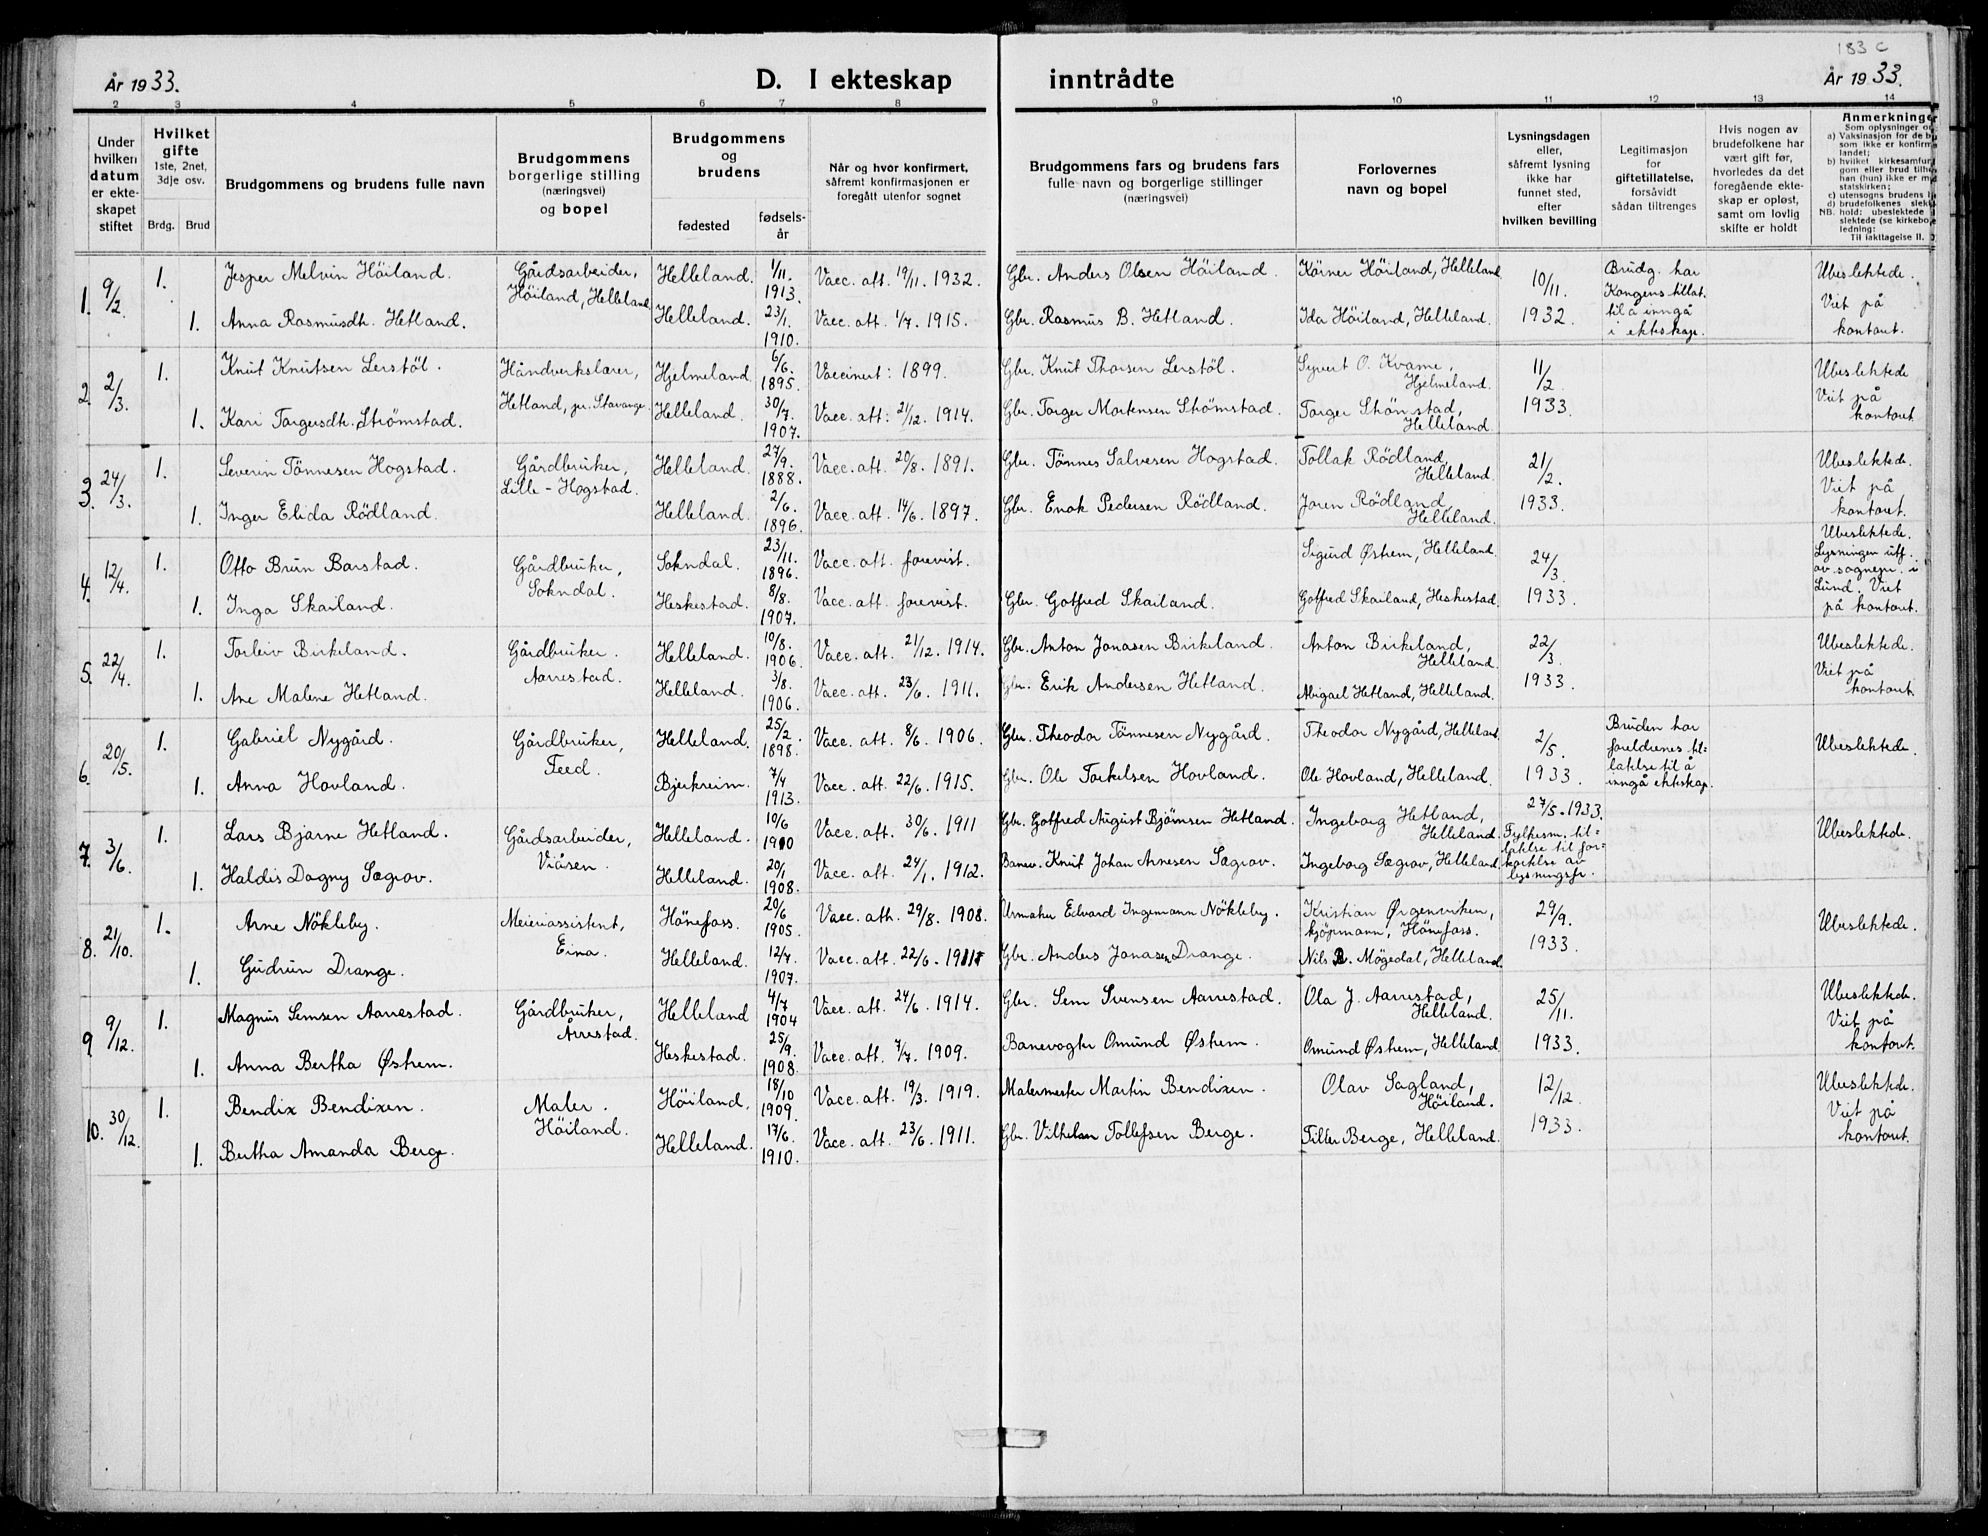 183 c
År 1933.
D. I ekteskap inntrådte
År 1933.
2 3 4 5 6 7 8 9 10 11 12 13 14
Under hvilken datum er ekteskapet stiftet
Hvilket gifte
1ste, 2net, 3dje osv.
Brdg. Brud
Brudgommens og brudens fulle navn
Brudgommens borgerlige stilling (næringsvei) og bopel
Brudgommens og brudens
fødested
fødselsår
Når og hvor konfirmert,
såfremt konfirmasjonen er
foregått utenfor sognet
Brudgommens fars og brudens fars
fulle navn og borgerlige stillinger
(næringsvei)
Forlovernes
navn og bopel
Lysningsdagen
eller,
såfremt lysning
ikke har
funnet sted,
efter
hvilken bevilling
Legitimasjon
for
giftetillatelse,
forsåvidt
sådan tiltrenges
Hvis nogen av
brudefolkene har
vært gift før,
hvorledes da det
foregående ekte-
skap er opløst,
samt om lovlig
skifte er holdt
Anmerkninger
1. 9/2. 1. Jesper Melvin Höiland. Gårdsarbeider, Höiland, Helleland Helleland. 1/11. 1913. Vacc. att. 19/11. 1932. Gbr. Anders Olsen Höiland. Körner Höiland, Helleland 10/11. 1932. Brudg. har Kongens tillat. til å inngå i ekteskap. Ubeslektede. Viet på kontoret.
1. Anna Rasmusdh. Hetland. Helleland. 23/1. 1910. Vacc. att. 1/7. 1915. Gbr. Rasmus B. Hetland. Ida Höiland, Helleland.
2. 2/3. 1. Knut Knutsen Lerstöl. Håndverkslærer, Hetland, pr. Stavanger Hjelmeland 6/6. 1895. Vaccinert: 1899. Gbr. Knut Thorsen Lerstöl. Syvert O. Kvame, Hjelmeland. 11/2. 1933. Ubeslektede Viet på kontoret
1. Kari Torgersdtr. Strømstad. Helleland. 30/7. 1907. Vacc. att: 21/12. 1914. Gbr. Torger Mortensen Strømstad. Torger Strømstad, Helleland
3. 24/3. 1. Severin Tönnesen Hogstad. Gårdbruker, Lille-Hogstad. Helleland. 27/9. 1888. Vacc. att. 20/8. 1891. Gbr. Tönnes Salvesen Hogstad. Tollak Rödland, Helleland. 21/2. 1933. Ubeslektede. Viet på kontoret.
1. Inger Elida Rödland. Helleland. 2/6. 1896. Vacc. att. 14/6. 1897. Gbr. Enok Pedersen Rödland. Joren Rödland, Helleland.
4. 12/4. 1. Otto Brun Barstad. Gårdbruker, Sokndal. Sokndal. 23/11. 1896. Vacc. att. forevist. Sigurd Østrem, Helleland. 24/3. 1933. Ubeslektede. Lysningen utf. av sognepr. i Lund. Viet på kontoret.
1. Inga Skailand. Heskestad. 8/8. 1907. Vacc. att. forevist. Gbr. Gotfred Skailand. Gotfred Skailand, Heskestad.
5. 22/4. 1. Torleiv Birkeland. Gårdbruker. Aarrestad. Helleland. 10/8. 1906. Vacc. att. 21/12. 1914. Gbr. Anton Jonasen Birkeland. Anton Birkeland, Helleland. 22/3. 1933. Ubeslektede. Viet på kontoret.
1. Ane Malene Hetland. Helleland. 3/8. 1906. Vacc. att. 23/6. 1911. Gbr. Erik Andersen Hetland. Abigael Hetland, Helleland.
6. 20/5. 1. Gabriel Nygård. Gårdbruker, Feed. Helleland. 25/2. 1898. Vacc. att. 8/6. 1906. Gbr. Theodor Tönnesen Nygård. Theodor Nygård, Helleland 2/5. 1933. Bruden har foreldrenes til=latelse til å inngå ekteskap. Ubeslektede.
1. Anna Hovland. Bjerkreim. 7/4 1913. Vacc. att. 22/6. 1915. Gbr. Ole Torkelsen Hovland. Ole Hovland, Helleland.
7. 3/6. 1. Lars Bjarne Hetland. Gårdsarbeider, Viåsen. Helleland. 10/6 1900 Vacc. att. 30/6. 1911 Gbr. Gotfred August Bjørnsen Hetland. Ingeborg Hetland, Helleland. 27/5. 1933. Fylkesm. til=latelse til for=kortelse av lysningsfr. Ubeslektede.
1. Haldis Dagny Sægrov. Helleland. 20/1 1908. Vacc. att. 24/1. 1912. Banev. Knut Johan Arnesen Sægrov. Ingeborg Sægrov, Helleland
8. 21/10. 1. Arne Nökleby. Meieriassistent, Eina. Hönefoss. 20/6 1905. Vacc. ath. 29/8. 1908. Urmaker Edvard Ingemann Nökleby. Kristian Ørgenviken, kjøpmann, Hönefoss. 29/9. 1933. Ubeslektede.
1. Gudrun Drange. Helleland. 12/7. 1907. Vacc. att. 22/6. Gbr. Anders Jonasen Drange. Nils R. Møgedal, Helleland.
9. 9/12. 1. Magnus Semsen Aarrestad. Gårdbruker, Årrestad. Helleland 4/7 1904 Vacc. att. 24/6. 1914. Gbr. Sem Svensen Aarrestad. Ola J. Aarrestad, Helleland. 25/11. 1933. Ubeslektede. Viet på kontoret.
1. Anna Bertha Østrem. Heskestad. 25/9. 1908. Vacc. att. 7/7. 1909. Banevogter Omund Østrem. Omund Østrem, Helleland.
10. 30/12. 1. Bendix Bendixen. Maler. Höiland. Höiland. 18/10 1909. Vacc. att. 19/3. 1919. Malermester Martin Bendixen. Olav Sagland, Höiland. 12/12. 1933. Ubeslektede. Viet på kontoret.
1. Bertha Amanda Berge. Helleland. 17/6. 1910. Vacc. att. 23/6. 1911. Gbr. Vilhelm Tollefsen Berge. Filler Berge, Helleland.